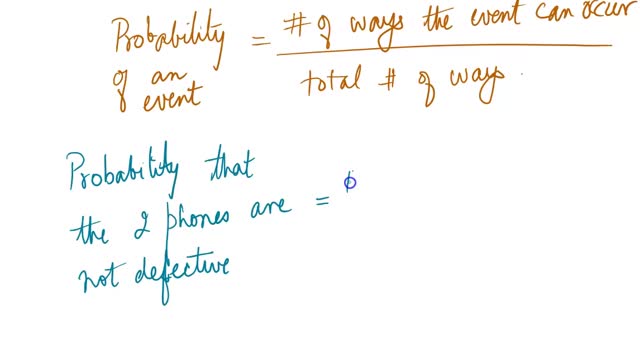 Probability = # of ways the event can occur
of an
event
total # of ways
Probability that
the 2 phones are =
not defective